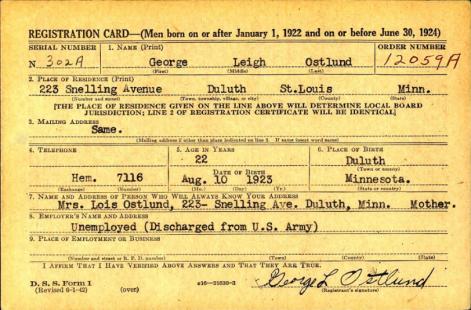 REGISTRATION CARD—(Men born on or after January 1, 1922 and on or before June 30, 1924)
SERIAL NUMBER 1. NAME (Print) ORDER NUMBER
N 302A George Leigh Ostlund 12059A
(First) (Middle) (Last)
2. PLACE OF RESIDENCE (Print)
223 Snelling Avenue Duluth St.Louis Minn.
(Number and street) (Town, township, village, or city) (County) (State)
[THE PLACE OF RESIDENCE GIVEN ON THE LINE ABOVE WILL DETERMINE LOCAL BOARD
JURISDICTION; LINE 2 OF REGISTRATION CERTIFICATE WILL BE IDENTICAL]
3. MAILING ADDRESS
Same.
(Mailing address if other than place indicated on line 2. If same insert word same)
4. TELEPHONE 5. AGE IN YEARS 6. PLACE OF BIRTH
22 Duluth
DATE OF BIRTH (Town or county)
Hem. 7116 Aug. 10 1923 Minnesota.
(Exchange) (Number) (Mo.) (Day) (Yr.) (State or country)
7. NAME AND ADDRESS OF PERSON WHO WILL ALWAYS KNOW YOUR ADDRESS
Mrs. Lois Ostlund, 223- Snelling Ave. Duluth, Minn. Mother.
8. EMPLOYER'S NAME AND ADDRESS
Unemployed (Discharged from U.S. Army)
9. PLACE OF EMPLOYMENT OR BUSINESS
(Number and street or R. F. D. number) (Town) (County) (State)
I AFFIRM THAT I HAVE VERIFIED ABOVE ANSWERS AND THAT THEY ARE TRUE.
D. S. S. Form 1 George L Ostlund
(Revised 6-1-42) (over) (Registrant's signature)